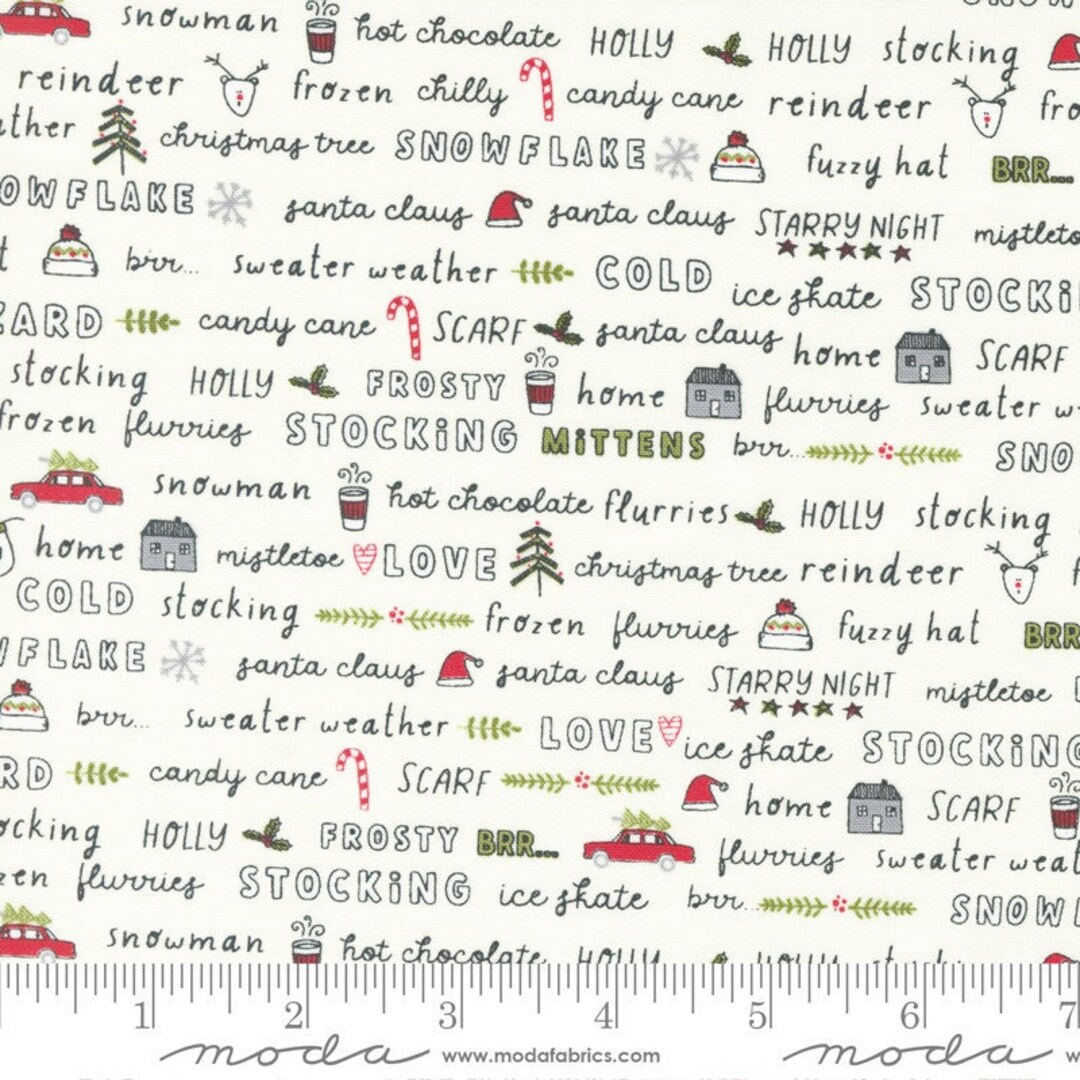 snowman hot chocolate HOLLY HOLLY stocking
reindeer frozen chilly candy cane reindeer
christmas tree SNOWFLAKE fuzzy hat BRR...
santa claus santa claus STARRY NIGHT
brr... sweater weather COLD ice skate
candy cane SCARF santa claus home SCARF
stocking HOLLY FROSTY home flurries sweater
frozen flurries STOCKiNG MiTTENS brr...
snowman hot chocolate flurries HOLLY stocking
home mistletoe LOVE christmas tree reindeer
COLD stocking frozen flurries fuzzy hat BRR
santa claus santa claus STARRY NIGHT mistletoe
brr... sweater weather LOVE ice skate STOCKiNG
candy cane SCARF home SCARF
HOLLY FROSTY BRR... flurries sweater
flurries STOCKiNG ice skate brr...
snowman hot chocolate HOLLY
1 2 3 4 5 6 7
moda www.modafabrics.com moda